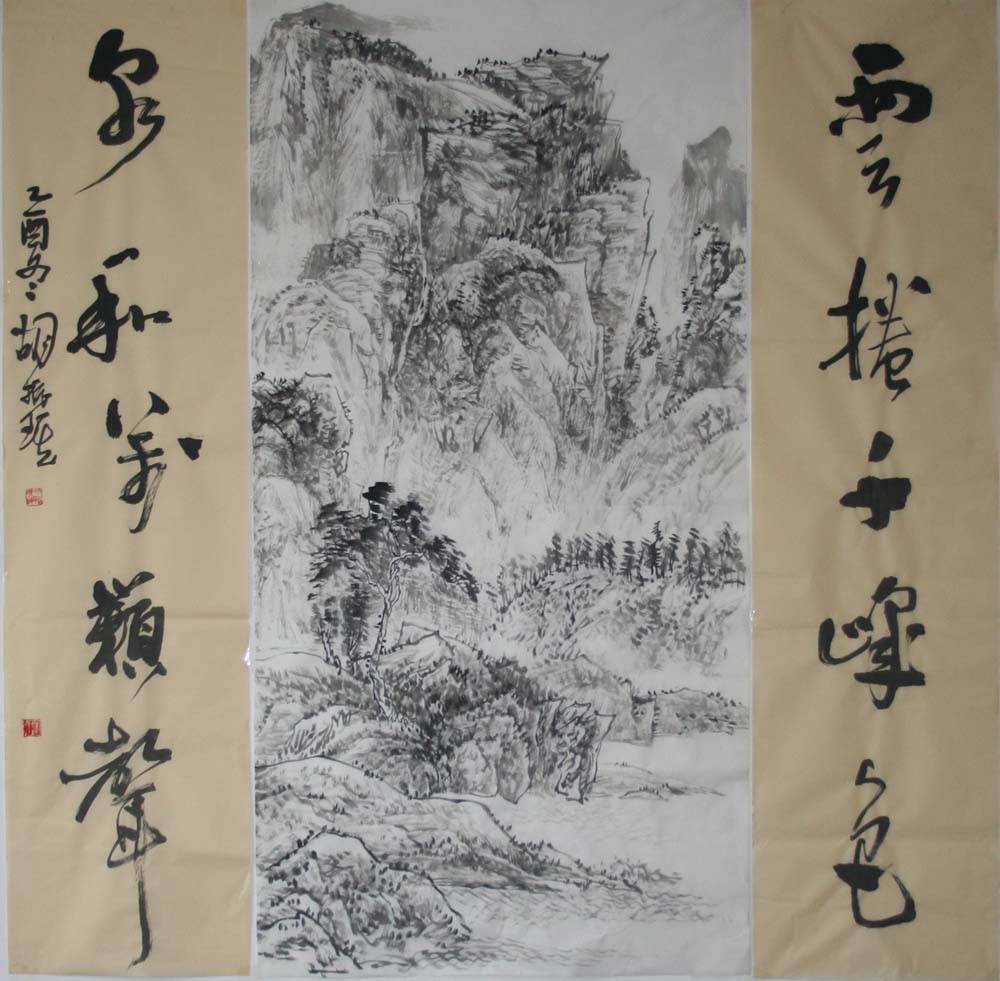 雲捲千峰色
泉和萬籟聲
乙酉冬 胡振